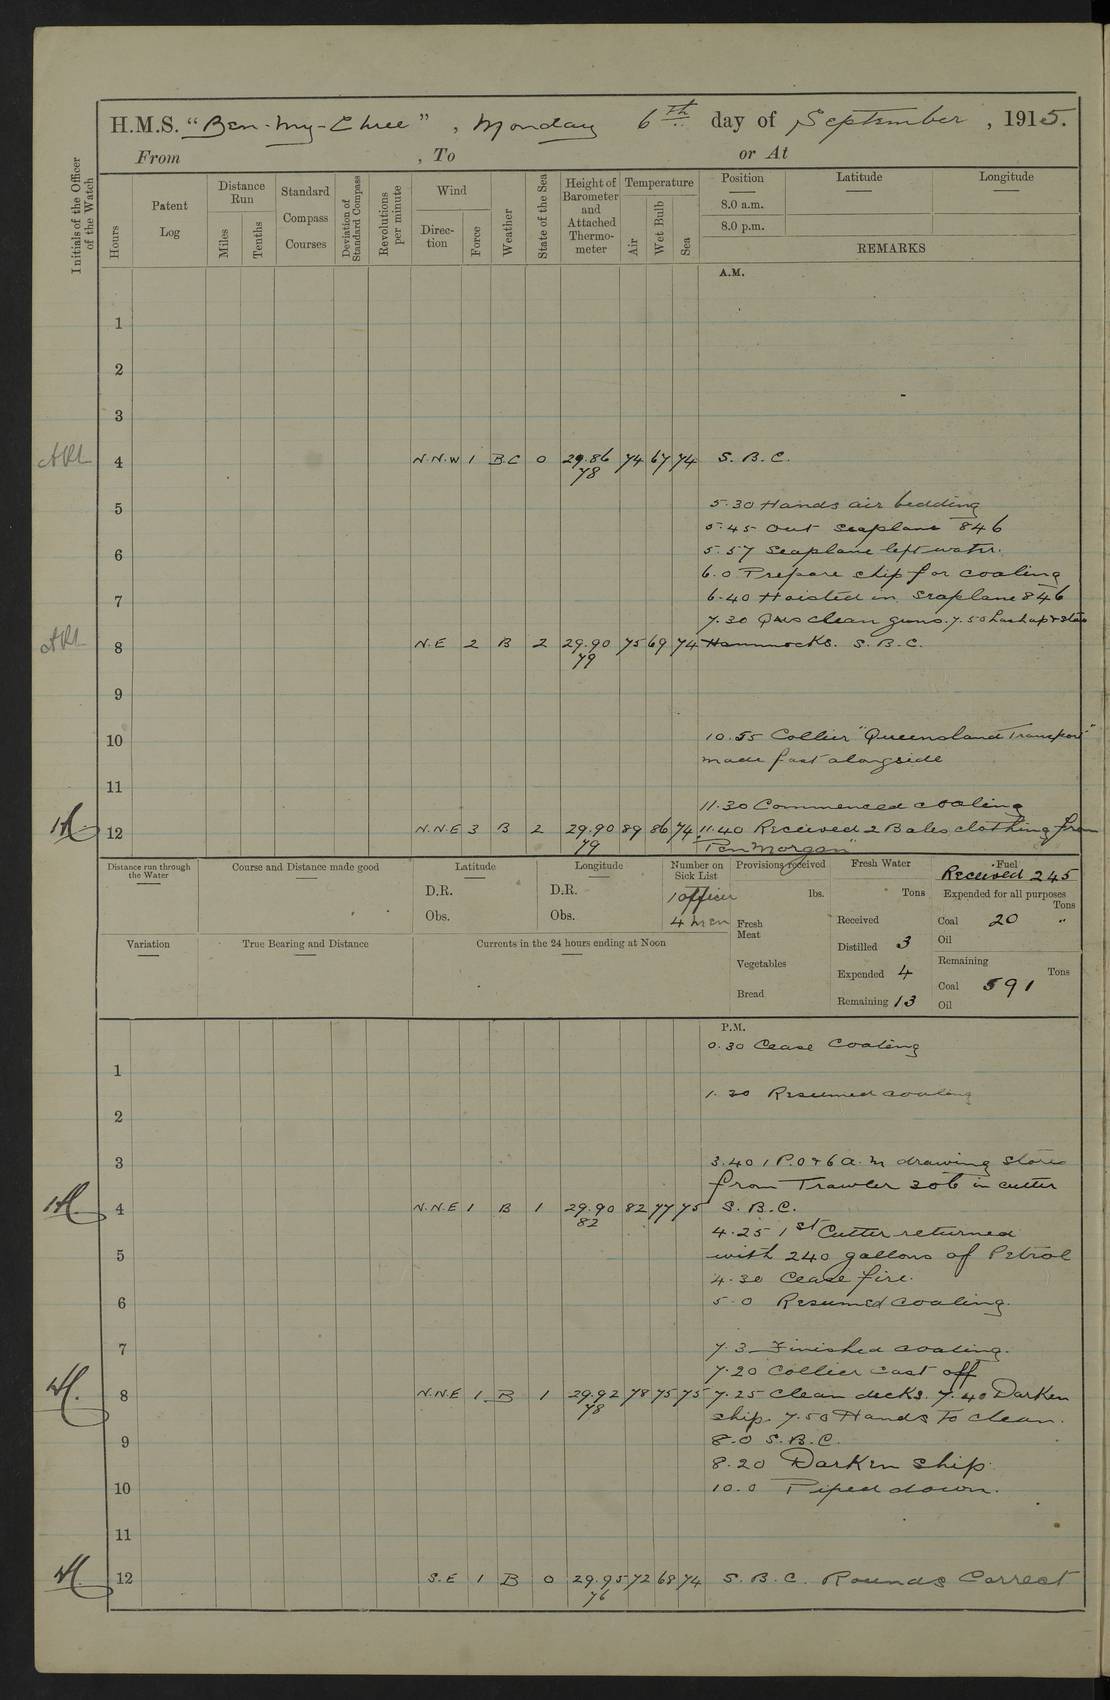 H.M.S. "Ben-my-Chree", Monday 6th day of September, 1915.
From , To or At
Initials of the Officer of the Watch
Hours
Patent Log
Distance Run
Miles
Tenths
Standard Compass Courses
Deviation of Standard Compass
Revolutions per minute
Wind
Direction
Force
Weather
State of the Sea
Height of Barometer and Attached Thermometer
Temperature
Air
Wet Bulb
Sea
Position
Latitude
Longitude
8.0 a.m.
8.0 p.m.
REMARKS
A.M.
1
2
3
4 N.N.W 1 B.C 0 29.86 74 67 74 S. B. C.
78
5 5.30 Hands air bedding
5.45 Out seaplane 846
6 5.57 Seaplane left water.
6.0 Prepare ship for coaling
7 6.40 Hoisted in seaplane 846
7.30 Qrs clean guns. 7.50 Lash up & stow
8 N.E 2 B 2 29.90 75 69 74 Hammocks. S. B. C.
79
9
10 10.55 Collier "Queensland Transport"
made fast alongside
11
11.30 Commenced coaling
12 N.N.E 3 B 2 29.90 89 86 74 11.40 Received 2 Bales clothing from
79 "Pen Morgan"
Distance run through the Water
Course and Distance made good
Latitude
D.R.
Obs.
Longitude
D.R.
Obs.
Number on Sick List
1 officer
4 men
Provisions received
lbs.
Fresh Meat
Vegetables
Bread
Fresh Water
Tons
Received
Distilled 3
Expended 4
Remaining 13
Fuel
Received 245
Expended for all purposes
Tons
Coal 20 "
Oil
Remaining
Tons
Coal 591
Oil
Variation
True Bearing and Distance
Currents in the 24 hours ending at Noon
P.M.
0.30 Cease Coaling
1
1.30 Resumed coaling
2
3 3.40 1 P.O & 6 a.m drawing stores
from Trawler 306 in cutter
4 N.N.E 1 B 1 29.90 82 77 75 S. B. C.
82
4.25 1st Cutter returned
5 with 240 gallons of Petrol
4.30 Cease fire.
6 5.0 Resumed coaling.
7 7.3 Finished coaling.
7.20 Collier cast off
8 N.N.E 1 B 1 29.92 78 75 75 7.25 Clean decks. 7.40 Darken
78 ship. 7.50 Hands to clean.
9 8.0 S.B.C.
8.20 Darken ship.
10 10.0 Piped down.
11
12 S.E 1 B 0 29.95 72 68 74 S. B. C. Rounds Correct
76